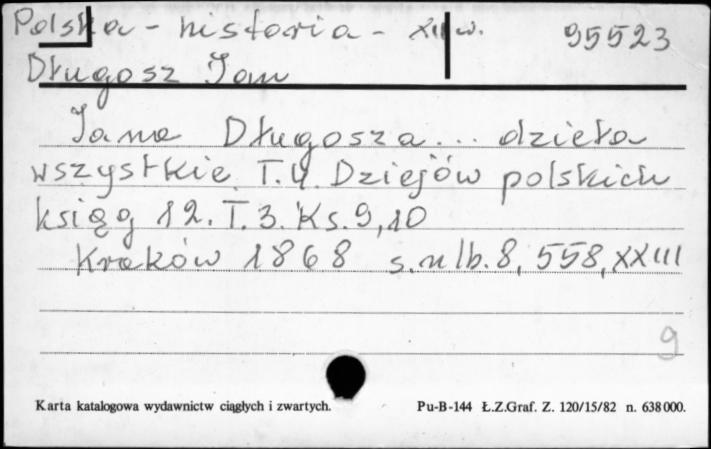 Polska - historia - XII w. 95523
Długosz Jan
Jana Długosza... dzieła
wszystkie. T.4. Dziejów polskich
ksiąg 12. T.3. Ks. 9, 10
Kraków 1868 s. nlb. 8, 558, XXIII
9
Karta katalogowa wydawnictw ciągłych i zwartych. Pu-B-144 Ł.Z.Graf. Z. 120/15/82 n. 638000.